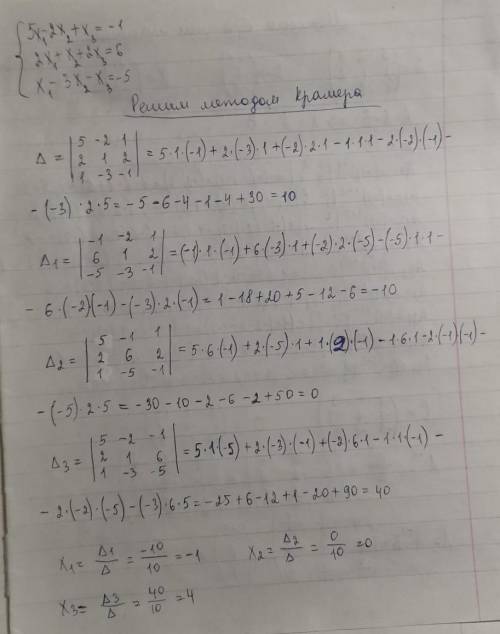 5x₁-2x₂+x₃=-1
2x₁+x₂+2x₃=6
x₁-3x₂-x₃=-5
Решим методом Крамера
Δ = |5 -2 1; 2 1 2; 1 -3 -1| = 5·1·(-1)+2·(-3)·1+(-2)·2·1-1·1·1-2·(-2)·(-1)-
-(-3)·2·5=-5-6-4-1-4+30=10
Δ1 = |-1 -2 1; 6 1 2; -5 -3 -1| = (-1)·1·(-1)+6·(-3)·1+(-2)·2·(-5)-(-5)·1·1-
- 6·(-2)(-1)-(-3)·2·(-1)=1-18+20+5-12-6=-10
Δ2 = |5 -1 1; 2 6 2; 1 -5 -1| = 5·6·(-1)+2·(-5)·1+1·(2)·(-1)-1·6·1-2·(-1)(-1)-
-(-5)·2·5=-30-10-2-6-2+50=0
Δ3 = |5 -2 -1; 2 1 6; 1 -3 -5| = 5·1·(-5)+2·(-3)·(-1)+(-2)·6·1-1·1·(-1)-
- 2·(-2)·(-5)-(-3)·6·5=-25+6-12+1-20+90=40
x₁= Δ1/Δ = -10/10 =-1 x₂= Δ2/Δ = 0/10 =0
x₃= Δ3/Δ = 40/10 =4